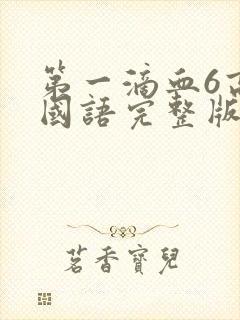 第一滴血6高
國語完整版
茗香寶兒